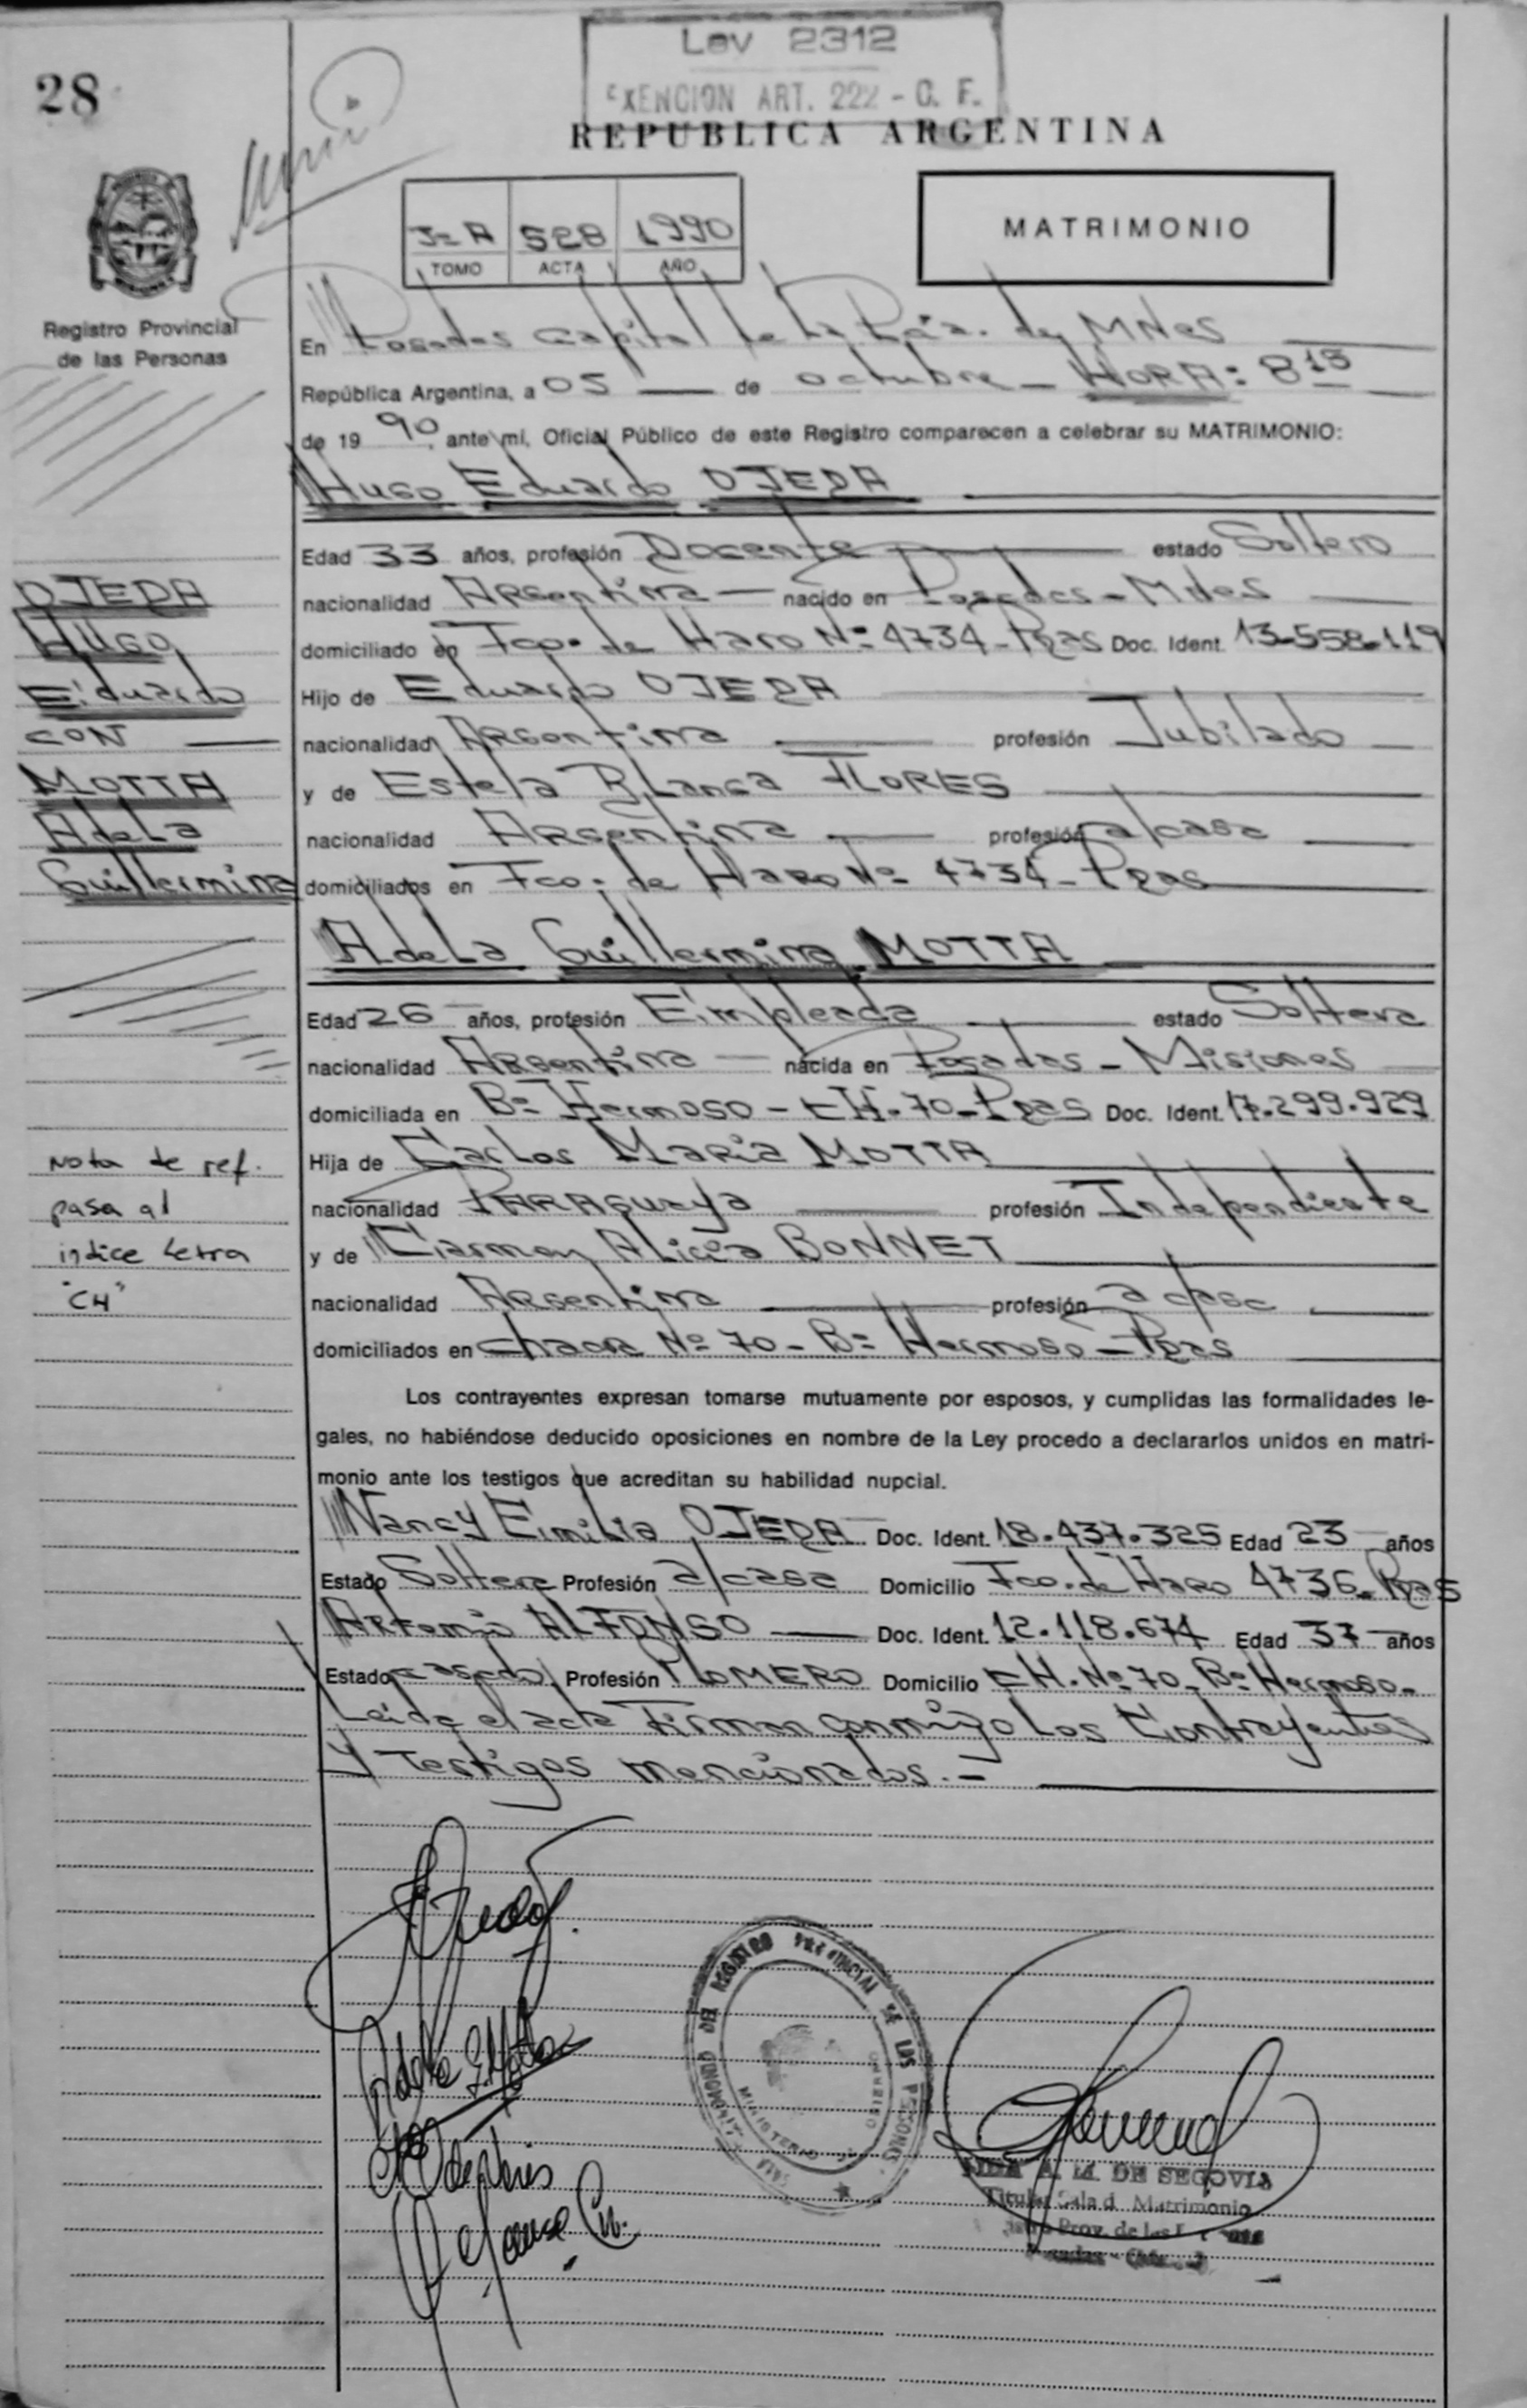 28
Ley 2312
EXENCION ART. 222 - C. F.
REPUBLICA ARGENTINA
528 1990
TOMO ACTA AÑO
MATRIMONIO
Registro Provincial
de las Personas
En Posadas Capital de La Pcia. de MNes
República Argentina, a 05 de octubre - HORA: 8 15
de 19 90, ante mí, Oficial Público de este Registro comparecen a celebrar su MATRIMONIO:
Hugo Eduardo OJEDA
Edad 33 años, profesión Docente estado Soltero
nacionalidad Argentina nacido en Posadas - Mnes
domiciliado en Fco. de Haro Nº 4734 - Pdas Doc. Ident. 13.558.119
Hijo de Eduardo OJEDA
nacionalidad Argentina profesión Jubilado
y de Estela Blanca FLORES
nacionalidad Argentina profesión a/casa
domiciliados en Fco. de Haro Nº 4734 - Pdas
OJEDA
Hugo
Eduardo
CON
MOTTA
Adela
Guillermina
Adela Guillermina MOTTA
Edad 26 años, profesión Empleada estado Soltera
nacionalidad Argentina nacida en Posadas - Misiones
domiciliada en Bº Hermoso - CH. 70 - Pdas Doc. Ident. 17.299.929
Hija de Carlos Maria MOTTA
nacionalidad PARAguaya profesión Independiente
y de Carmen Alicia BONNET
nacionalidad Argentina profesión a/casa
domiciliados en chacra Nº 70 - Bº Hermoso - Pdas
Nota de ref.
pasa al
indice letra
"CH"
Los contrayentes expresan tomarse mutuamente por esposos, y cumplidas las formalidades le-
gales, no habiéndose deducido oposiciones en nombre de la Ley procedo a declararlos unidos en matri-
monio ante los testigos que acreditan su habilidad nupcial.
Nancy Emilia OJEDA Doc. Ident. 18.437.325 Edad 23 años
Estado Soltera Profesión a/casa Domicilio Fco. de Haro 4736 - Pdas
Artemio ALFONSO Doc. Ident. 12.118.674 Edad 37 años
Estado casado Profesión PLOMERO Domicilio CH. Nº 70 - Bº Hermoso.
Leída el acta Firman conmigo Los Contrayentes
y Testigos mencionados. -
DEL REGISTRO PROVINCIAL DE LAS PERSONAS
MINISTERIO DE GOBIERNO
A. M. DE SEGOVIA
Titular Sala d Matrimonio
Prov. de las